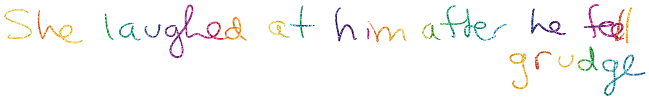 She laughed at him after he feel
grudge